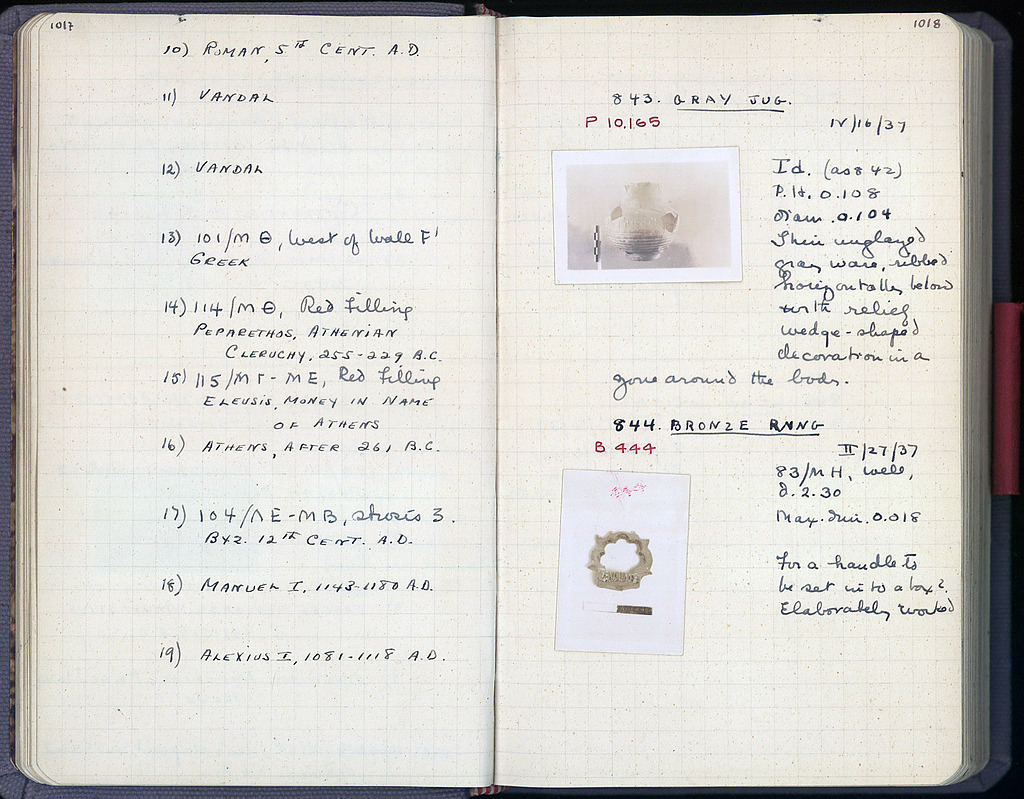 1017
10) ROMAN, 5TH CENT. A.D.
11) VANDAL
12) VANDAL
13) 101/ΜΘ, West of Wall F'
GREEK
14) 114/ΜΘ, Red Filling
PEPARETHOS, ATHENIAN
CLERUCHY, 255-229 B.C.
15) 115/ΜΓ-ΜΕ, Red Filling
ELEUSIS, MONEY IN NAME
OF ATHENS
16) ATHENS, AFTER 261 B.C.
17) 104/ΛΕ-ΜΒ, strosis 3.
BYZ. 12TH CENT. A.D.
18) MANUEL I, 1143-1180 A.D.
19) ALEXIUS I, 1081-1118 A.D.
1018
843. GRAY JUG.
P 10,165
IV/16/37
Id. (as 842)
P.H. 0.108
Diam. 0.104
Thin unglazed
gray ware, ribbed
horizontally below
with relief
wedge-shaped
decoration in a
zone around the body.
844. BRONZE RING
B 444
II/27/37
83/ΜΗ, well,
d. 2.30
Max. dim. 0.018
For a handle to
be set into a box?
Elaborately worked